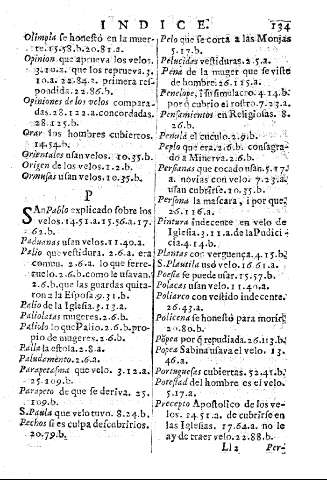 INDICE.
134
Olimpia se honestó en la muer-
te. 15.58.b. 20.81.a.
Opinion que aprueva los velos.
3.10.a. que los reprueva. 3.
10.a. 22.84.2. primera res-
pondida. 22.86.b.
Opiniones de los velos compara-
das. 28.122.a. concordadas.
28.125.b.
Orar los hombres cubiertos.
14.54.b.
Orientales usan velos. 10.35.b.
Origen de los velos. 1.2.b.
Ormusas usan velos. 10.35.b.
P
SAn Pablo explicado sobre los
velos. 14.51.a. 15.56.a. 17.
62.b.
Paduanas usan velo. 11.40.a.
Palio que vestidura. 2.6.a. era
comun. 2.6.a. lo que ferre-
cuelo. 2.6.b. como le usavan.
2.6.b. que las guardas quita-
ron a la Esposa 9.31.b.
Palio de la Iglesia. 3.13.a.
Paliolatas mugeres. 2.6.b.
Paliolo lo que Palio. 2.6.b. pro-
pio de mugeres. 2.6.b.
Palla la estola. 2.8.a.
Paludamento. 2.6.a.
Parapetasma que velo. 3.12.a.
25.109.b.
Parapeto de que se deriva. 25.
109.b.
S. Paula que velo tuvo. 8.24.b.
Pechos si es culpa descubrirlos.
20.79.b.
Pelo que se corta a las Monjas
5.17.b.
Pelucidas vestiduras. 2.5.a.
Pena de la muger que se viste
de hombre. 26.115.a.
Penelope, i su simulacro. 4.14.b.
por q̃ cubrio el rostro. 7.23.a.
Pensamientos en Religiosas. 8.
26.b.
Penula el cuculo. 2.9.b.
Peplo que era. 2.6.b. consagra-
do a Minerva. 2.6.b.
Persianas que tocado usan. 5.17
a. novias con velo. 7.23.a.
usan cubrirse. 10.35.b.
Persona la mascara, i por que.
26.116.a.
Pintura indecente en velo de
Iglesia. 3.11.a. de la Pudici-
cia. 4.14.b.
Plantas con verguença. 4.15.b.
S. Plautila usó velo. 16.61.a.
Poesia se puede usar. 15.57.b.
Polacas usan velo. 11.40.a.
Poliarco con vestido indecente.
26.43.a.
Policena se honestó para morir,
20.80.b.
Pópea por q̃ repudiada. 26.113.b.
Popea Sabina usava el velo. 13.
46.a.
Portuguesas cubiertas. 32.41.b.
Potestad del hombre es el velo.
5.17.a.
Precepto Apostolico de los ve-
los. 14.51.a. de cubrirse en
las Iglesias. 17.64.a. no le
ay de traer velo. 22.88.b.
Ll 2
Per-